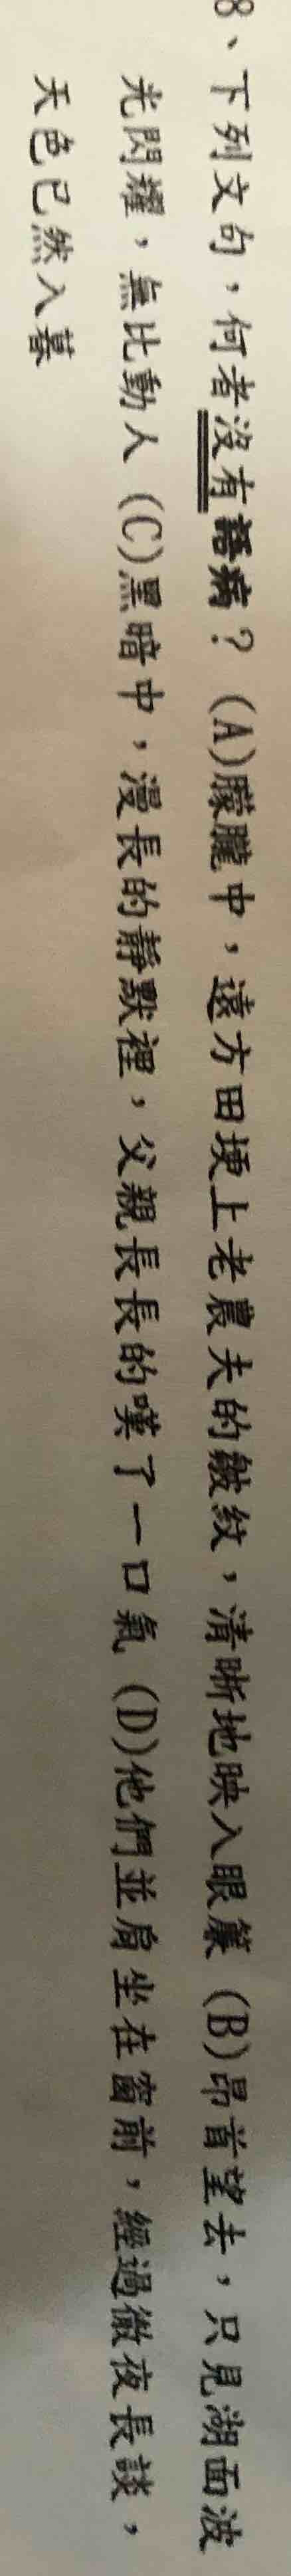 8、下列文句，何者沒有語病？ (A)朦朧中，遠方田埂上老農夫的皺紋，清晰地映入眼簾 (B)昂首望去，只見湖面波
光閃耀，無比動人 (C)黑暗中，漫長的靜默裡，父親長長的嘆了一口氣 (D)他們並肩坐在窗前，經過徹夜長談，
天色已然入暮